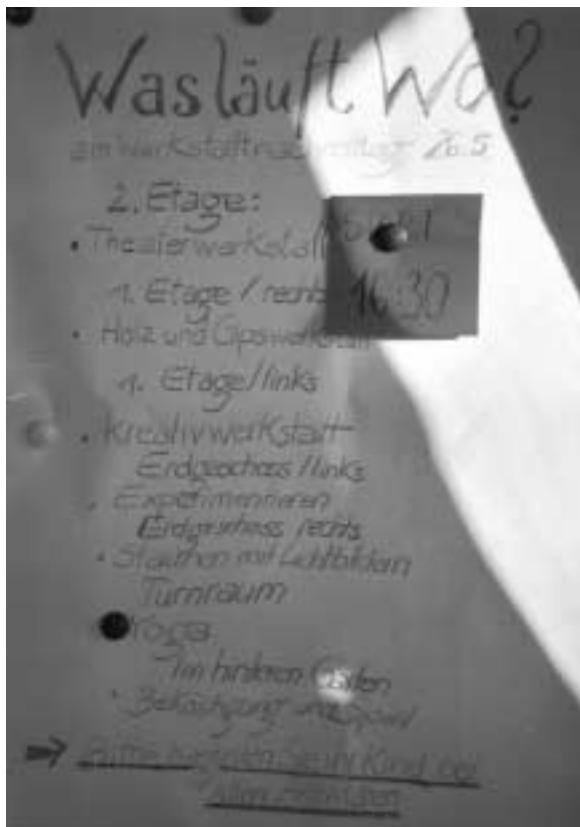 Was läuft Wo?
am Werkstattnachmittag 26.5
2. Etage:
• Theaterwerkstatt
16:30
1. Etage / rechts
• Holz und Gipswerkstatt
1. Etage/links
• Kreativwerkstatt
Erdgeschoss/links
• Experimentieren
Erdgeschoss rechts
• Staunen mit Lichtbildern
Turnraum
Yoga
Im hinteren Garten
• Beköstigung
Bitte begleiten Sie ihr Kind bei
allen Aktivitäten